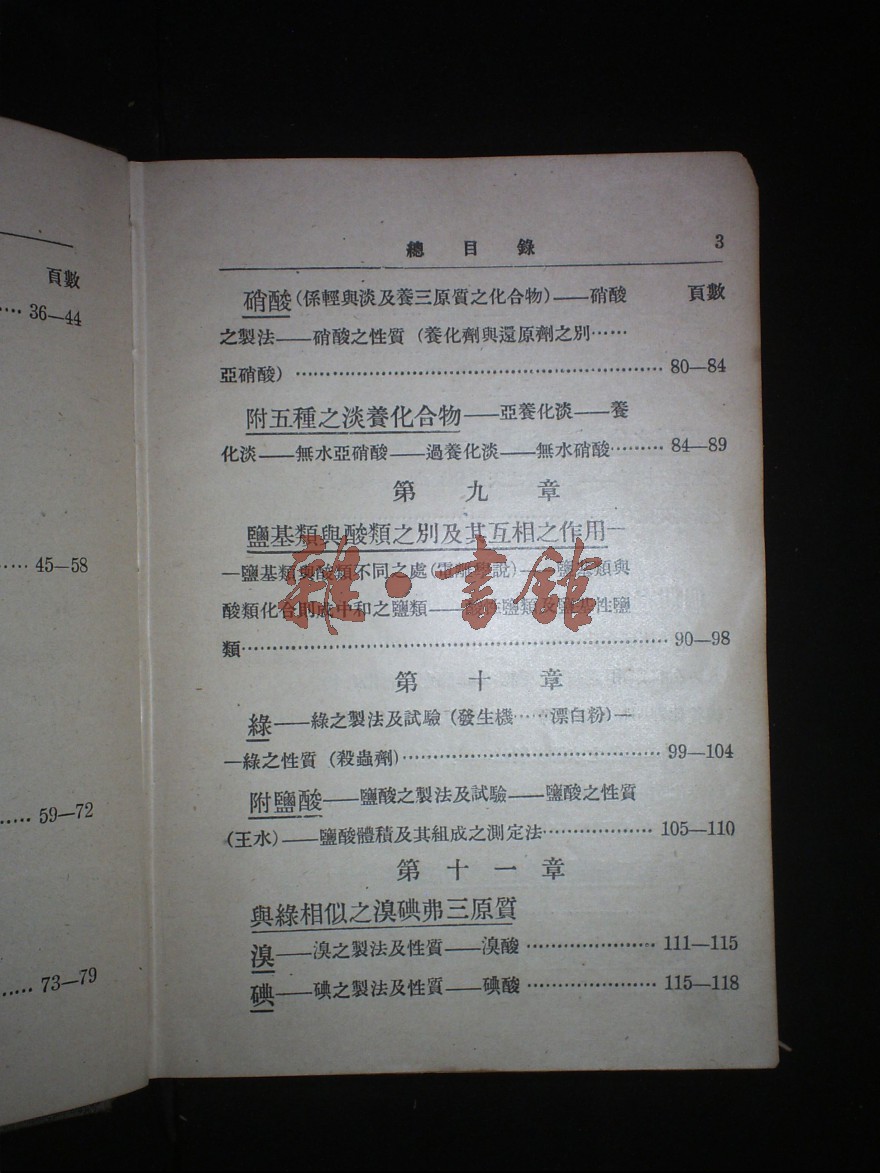 頁數
36—44
45—58
59—72
73—79
總目錄 3
硝酸(係輕與淡及養三原質之化合物)——硝酸 頁數
之製法——硝酸之性質(養化劑與還原劑之別……
亞硝酸)……80—84
附五種之淡養化合物——亞養化淡——養
化淡——無水亞硝酸——過養化淡——無水硝酸……84—89
第九章
鹽基類與酸類之別及其互相之作用—
—鹽基類與酸類不同之處(電離學說)——鹽基類與
酸類化合則成中和之鹽類——酸性鹽類及鹽基性鹽
類……90—98
第十章
綠——綠之製法及試驗(發生機……漂白粉)—
—綠之性質(殺蟲劑)……99—104
附鹽酸——鹽酸之製法及試驗——鹽酸之性質
(王水)——鹽酸體積及其組成之測定法……105—110
第十一章
與綠相似之溴碘弗三原質
溴——溴之製法及性質——溴酸……111—115
碘——碘之製法及性質——碘酸……115—118
雜·書館